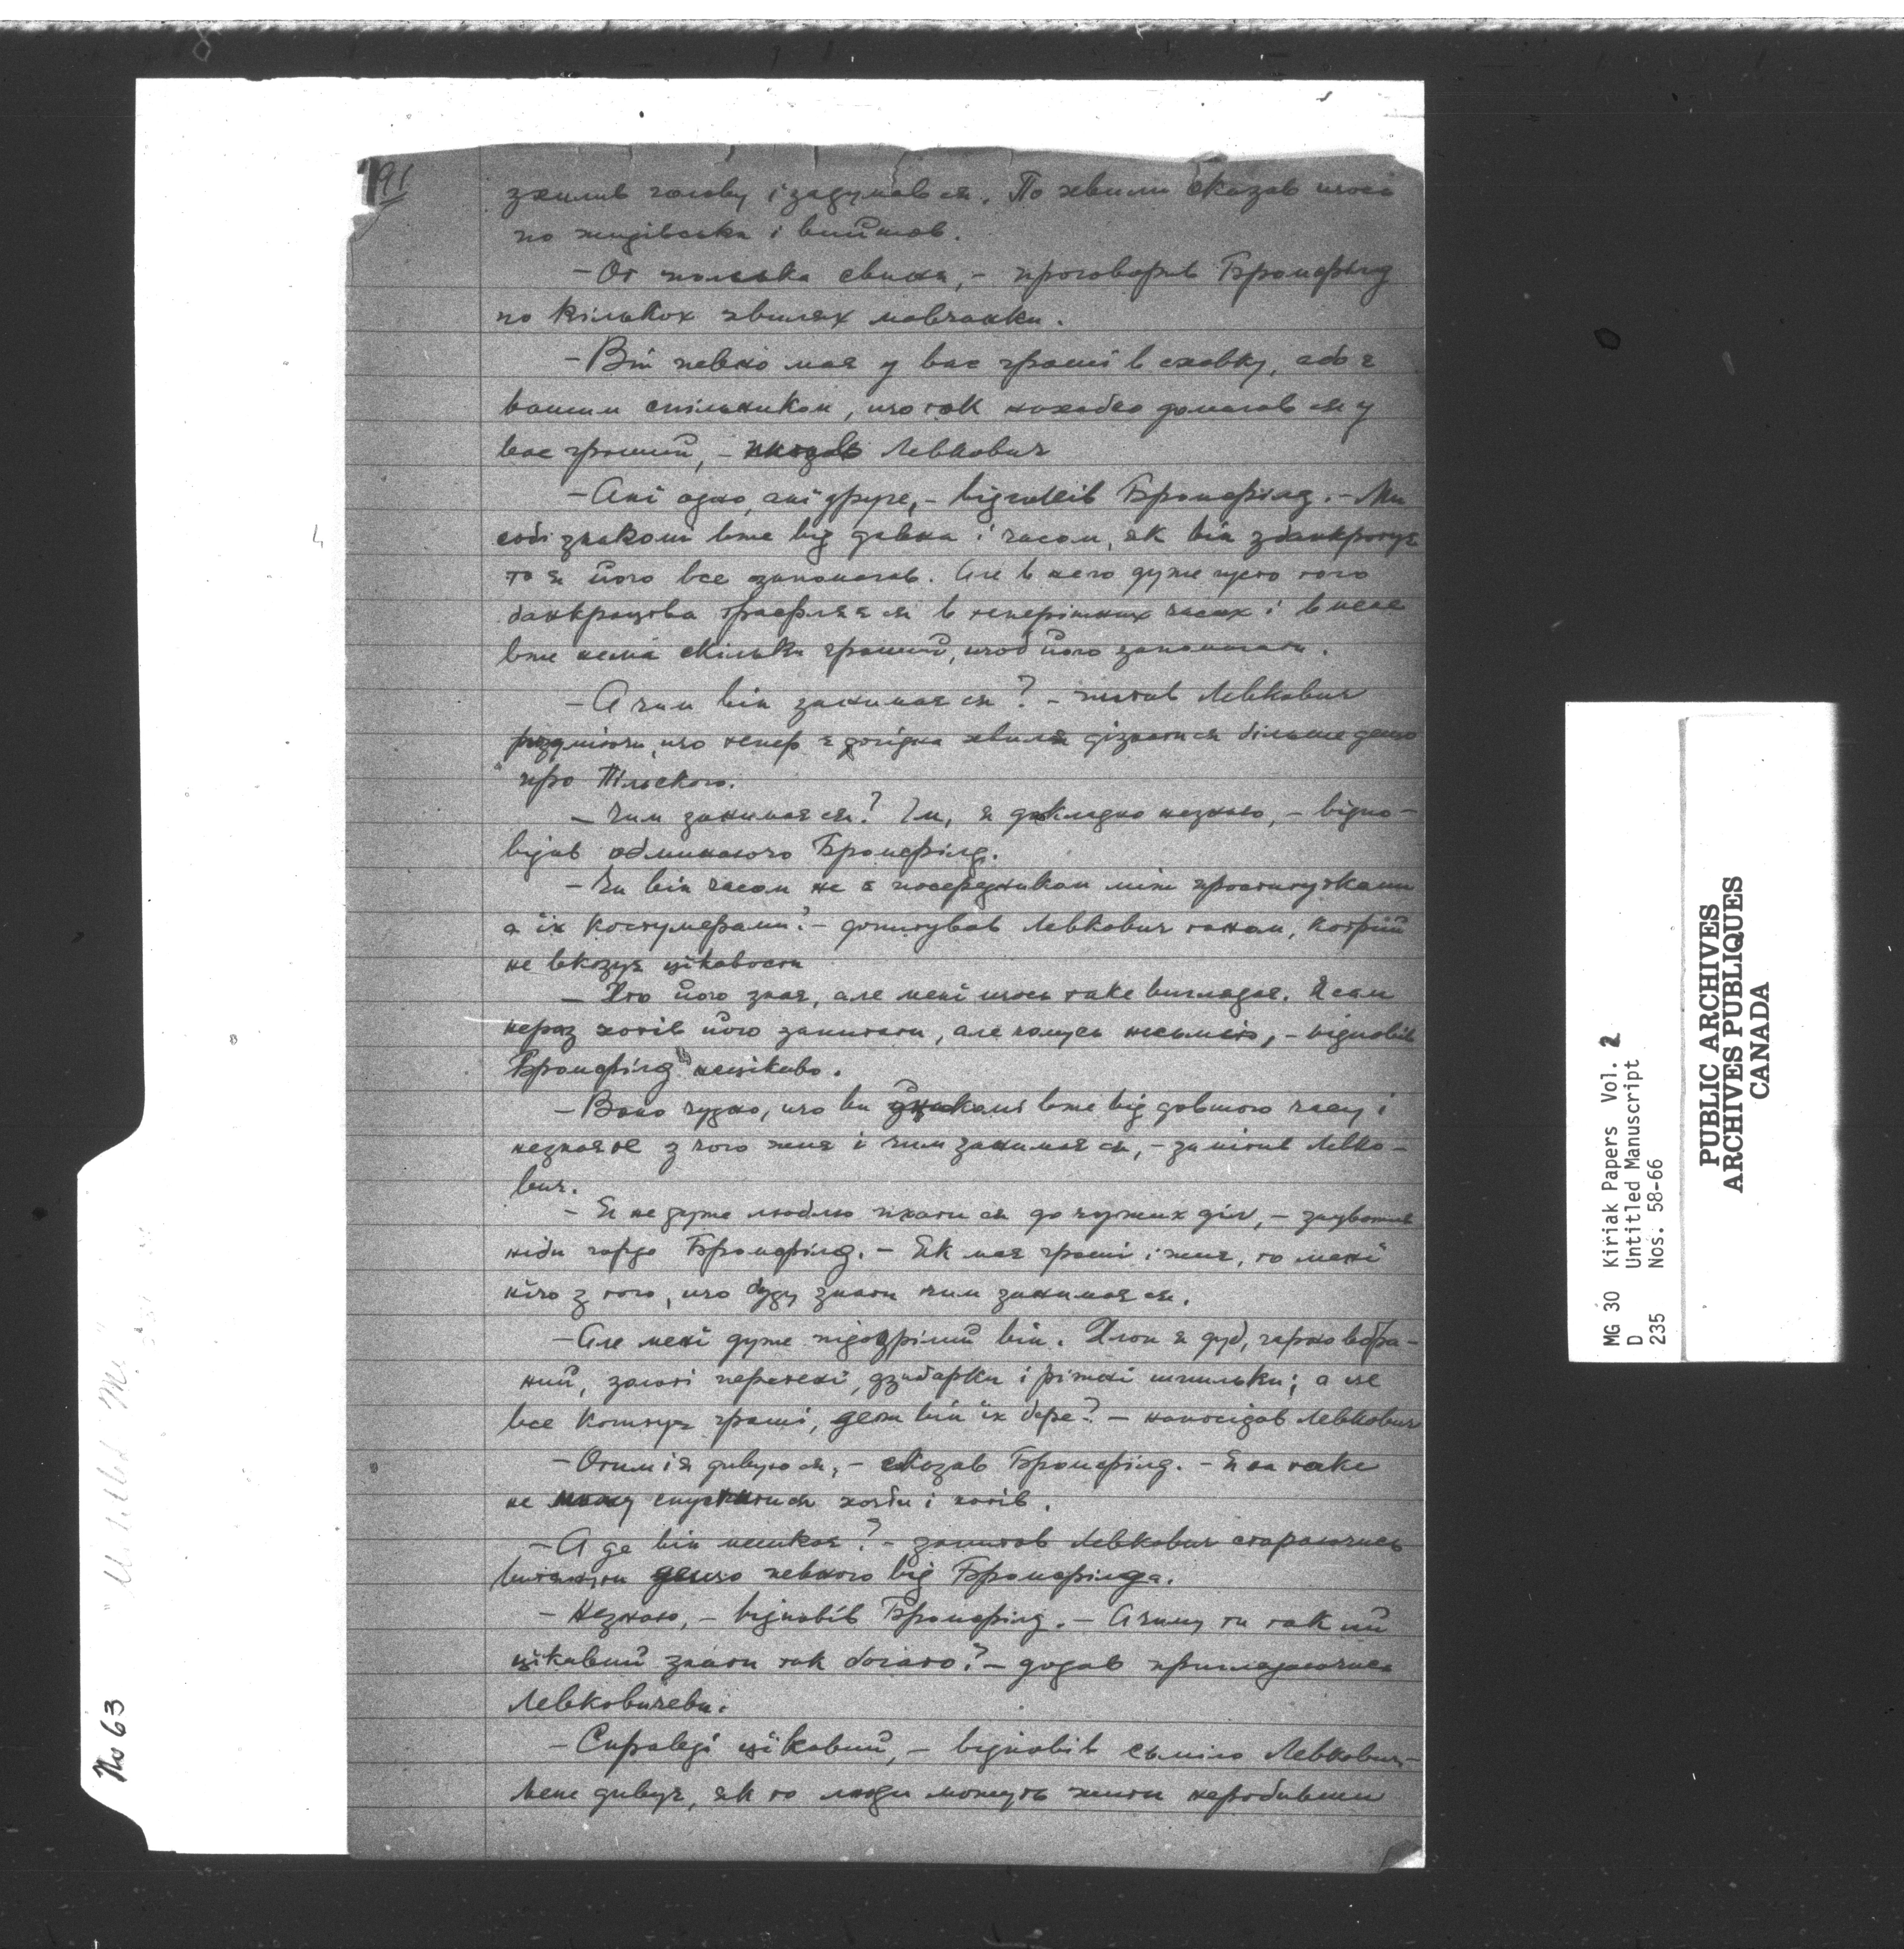 191
схилив голову і задумав ся. По хвили сказав щось
по жидівськи і вийшов.
— От польська свиня, — проговорив Бромфілд
по кількох хвилях мовчанки.
— Він певно має у вас гроші в сховку, або є
вашим спільником, що так нахабно домагав ся у
вас грошей, — Левкович
— Ані одно, ані друге, — відповів Бромфілд. — Ми
собі знакомі вже від давна і часом, як він збанкротує
то я його все запомагав. Але в него дуже часто того
банкроцтва трафляє ся в теперішних часах і в мене
вже нема скільки грошей, щоб його запомагати.
— А чим він занимає ся? — питав Левкович
розуміючи, що тепер є догідна хвиля дізнати ся більше дещо
про Пільского.
— Чим занимає ся? Гм, я докладно незнаю, — відпо-
відав обминаючо Бромфілд.
— Чи він часом не є посередником між проститутками
а їх костумерами? — допитував Левкович тоном, котрий
не вказує цікавости
— Хто його знає, але мені щось таке виглядає. Я сам
нераз хотів його запитати, але чомусь несьмію, — відповів
Бромфілд нецікаво.
— Воно чудно, що ви знакомі вже від довшого часу і
незнаєте з чого жиє і чим занимає ся, — замітив Левко-
вич.
— Я не дуже люблю пхати ся до чужих діл, — зауважив
ніби гордо Бромфілд. — Як має гроші і жиє, то мені
нічо з того, що буду знати чим занимає ся.
— Але мені дуже підозрілий він. Хлоп як дуб, гарно вбра-
ний, золоті перстені, дзигарки і ріжні шпильки; а це
все коштує гроші, де ж він їх бере? — напосідав Левкович
— Отим і я дивую ся, — сказав Бромфілд. — Я на таке
не можу спустити ся хотьби і хотів.
— А де він мешкає? — запитав Левкович стараючись
витягнути дещо певного від Бромфілда.
— Незнаю, — відповів Бромфілд. — А чому ти такий
цікавий знати так богато? — додав приглядаючись
Левковичеви.
— Справді цікавий, — відповів сьміло Левкович —
Мене дивує, як то люди можуть жити неробивши
No 63
MG 30 Kiriak Papers Vol. 2
D Untitled Manuscript
235 Nos. 58-66
PUBLIC ARCHIVES
ARCHIVES PUBLIQUES
CANADA